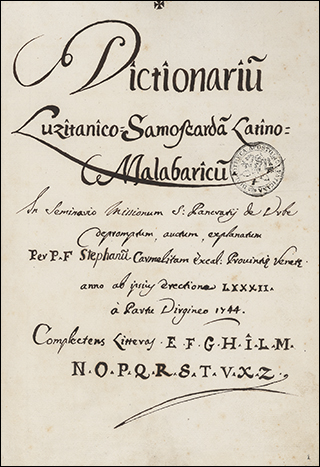 Dictionariũ
Luzitanico-Samoscardã Latino-
Malabaricũ
In Seminario Missionum S: Pancratij de Urbe
depromptum, auctum, explanatum
Per P. F Stephanũ Carmelitam Excal: Provintiæ Venetæ
anno ab erectione LXXXII.
à Partu Virgineo 1744.
Complectens Litteras. E. F. G. H. Î. L. M.
N. O. P. Q. R. S. T. V. X. Z.